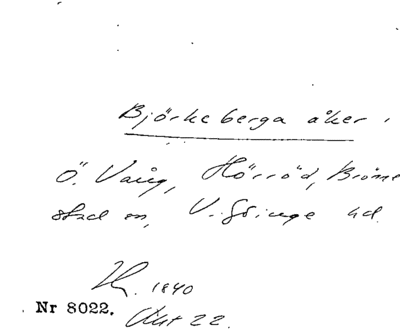 Björkeberga åker,
Ö. Vång, Hörröd, Bröme
stad sn, V. Göinge hd.
1840
Nr 8022. Akt 22.